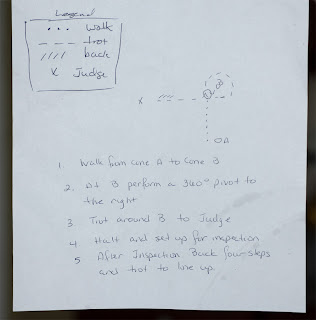 Legend
... Walk
--- trot
//// back
x Judge
B
x
A
1. Walk from cone A to cone B
2. At B perform a 360° pivot to
the right
3 Trot around B to Judge
4 Halt and set up for inspection
5 After Inspection Back four steps
and trot to line up.